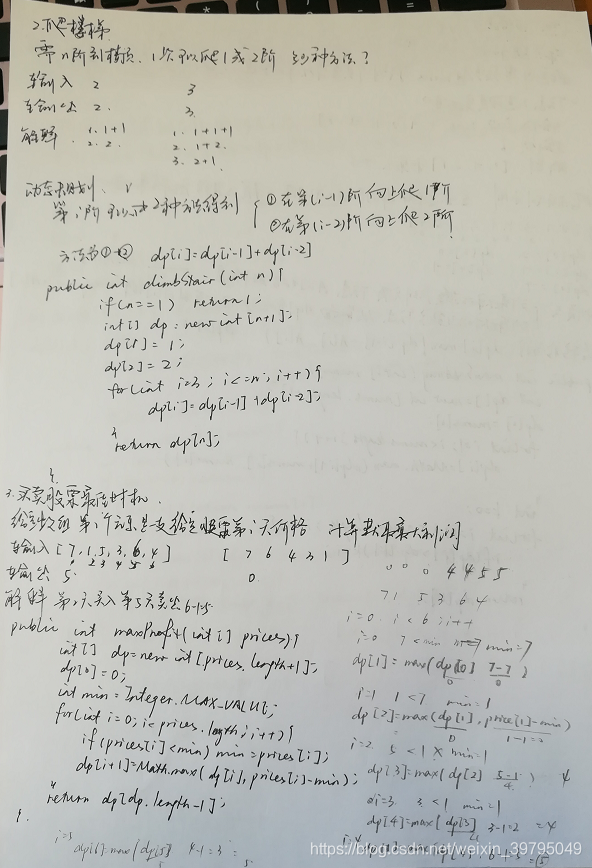 2.爬楼梯
需n阶到楼顶. 1次可以爬1或2阶 多少种方法?
输入 2 3
输出 2. 3.
解释. 1. 1+1 1. 1+1+1
2. 2. 2. 1+2.
3. 2+1.
动态规划.
第i阶可以由2种方法得到 ①在第(i-1)阶向上爬1阶
②在第(i-2)阶向上爬2阶
方法为①+② dp[i]=dp[i-1]+dp[i-2]
public int climbStair(int n){
if(n==1) return 1;
int[] dp = new int[n+1];
dp[1] = 1;
dp[2] = 2;
for(int i=3; i<=n; i++){
dp[i]=dp[i-1]+dp[i-2];
}
return dp[n];
}
3.买卖股票最佳时机.
给定数组 第i个元素是一支给定股票第i天价格 计算获取最大利润
输入[7,1,5,3,6,4] [ 7 6 4 3 1 ]
输出 5 0
解释 第2天买入 第5天卖出 6-1=5
public int maxProfit(int[] prices){
int[] dp=new int[prices.length+1];
dp[0]=0;
int min = Integer.MAX_VALUE;
for(int i=0; i<prices.length; i++){
if(prices[i]<min) min=prices[i];
dp[i+1]=Math.max(dp[i], prices[i]-min);
}
return dp[dp.length-1];
}
0 0 0 4 4 5 5
7 1 5 3 6 4
i=0. i<6 i++
i=0 7<min min=7
dp[1]=max(dp[0] 7-7)
0 0
i=1 1<7 min=1
dp[2]=max(dp[1], price[1]-min)
0 1-1=0
i=2. 5<1 × min=1
dp[3]=max(dp[2] 5-1) 4
4
i=3 3<1 min=1
dp[4]=max(dp[3] 3-1=2 =4
i=5
dp[6]=max(dp[5] 4-1=3 =
5
https://blog.csdn.net/weixin_39795049